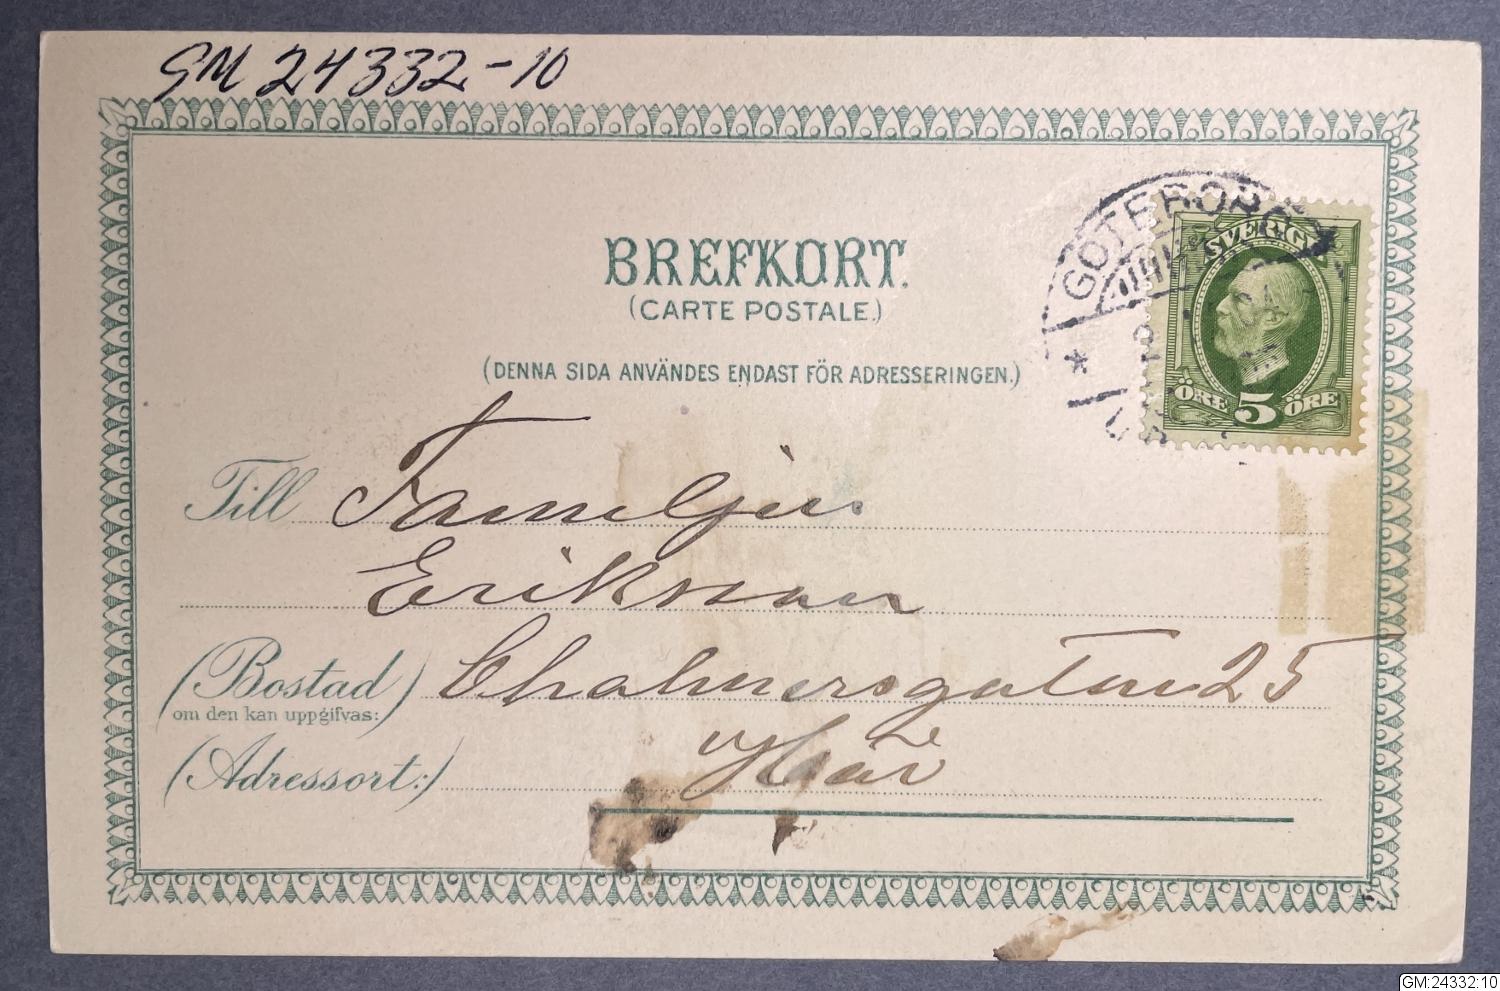 GM 24332-10
BREFKORT.
(CARTE POSTALE.)
(DENNA SIDA ANVÄNDES ENDAST FÖR ADRESSERINGEN.)
GÖTEBORG
SVERIGE
ÖRE 5 ÖRE
Till Familjen
Eriksson
(Bostad) Chalmersgatan 25
om den kan uppgifvas:
(Adressort:) Här
GM:24332:10